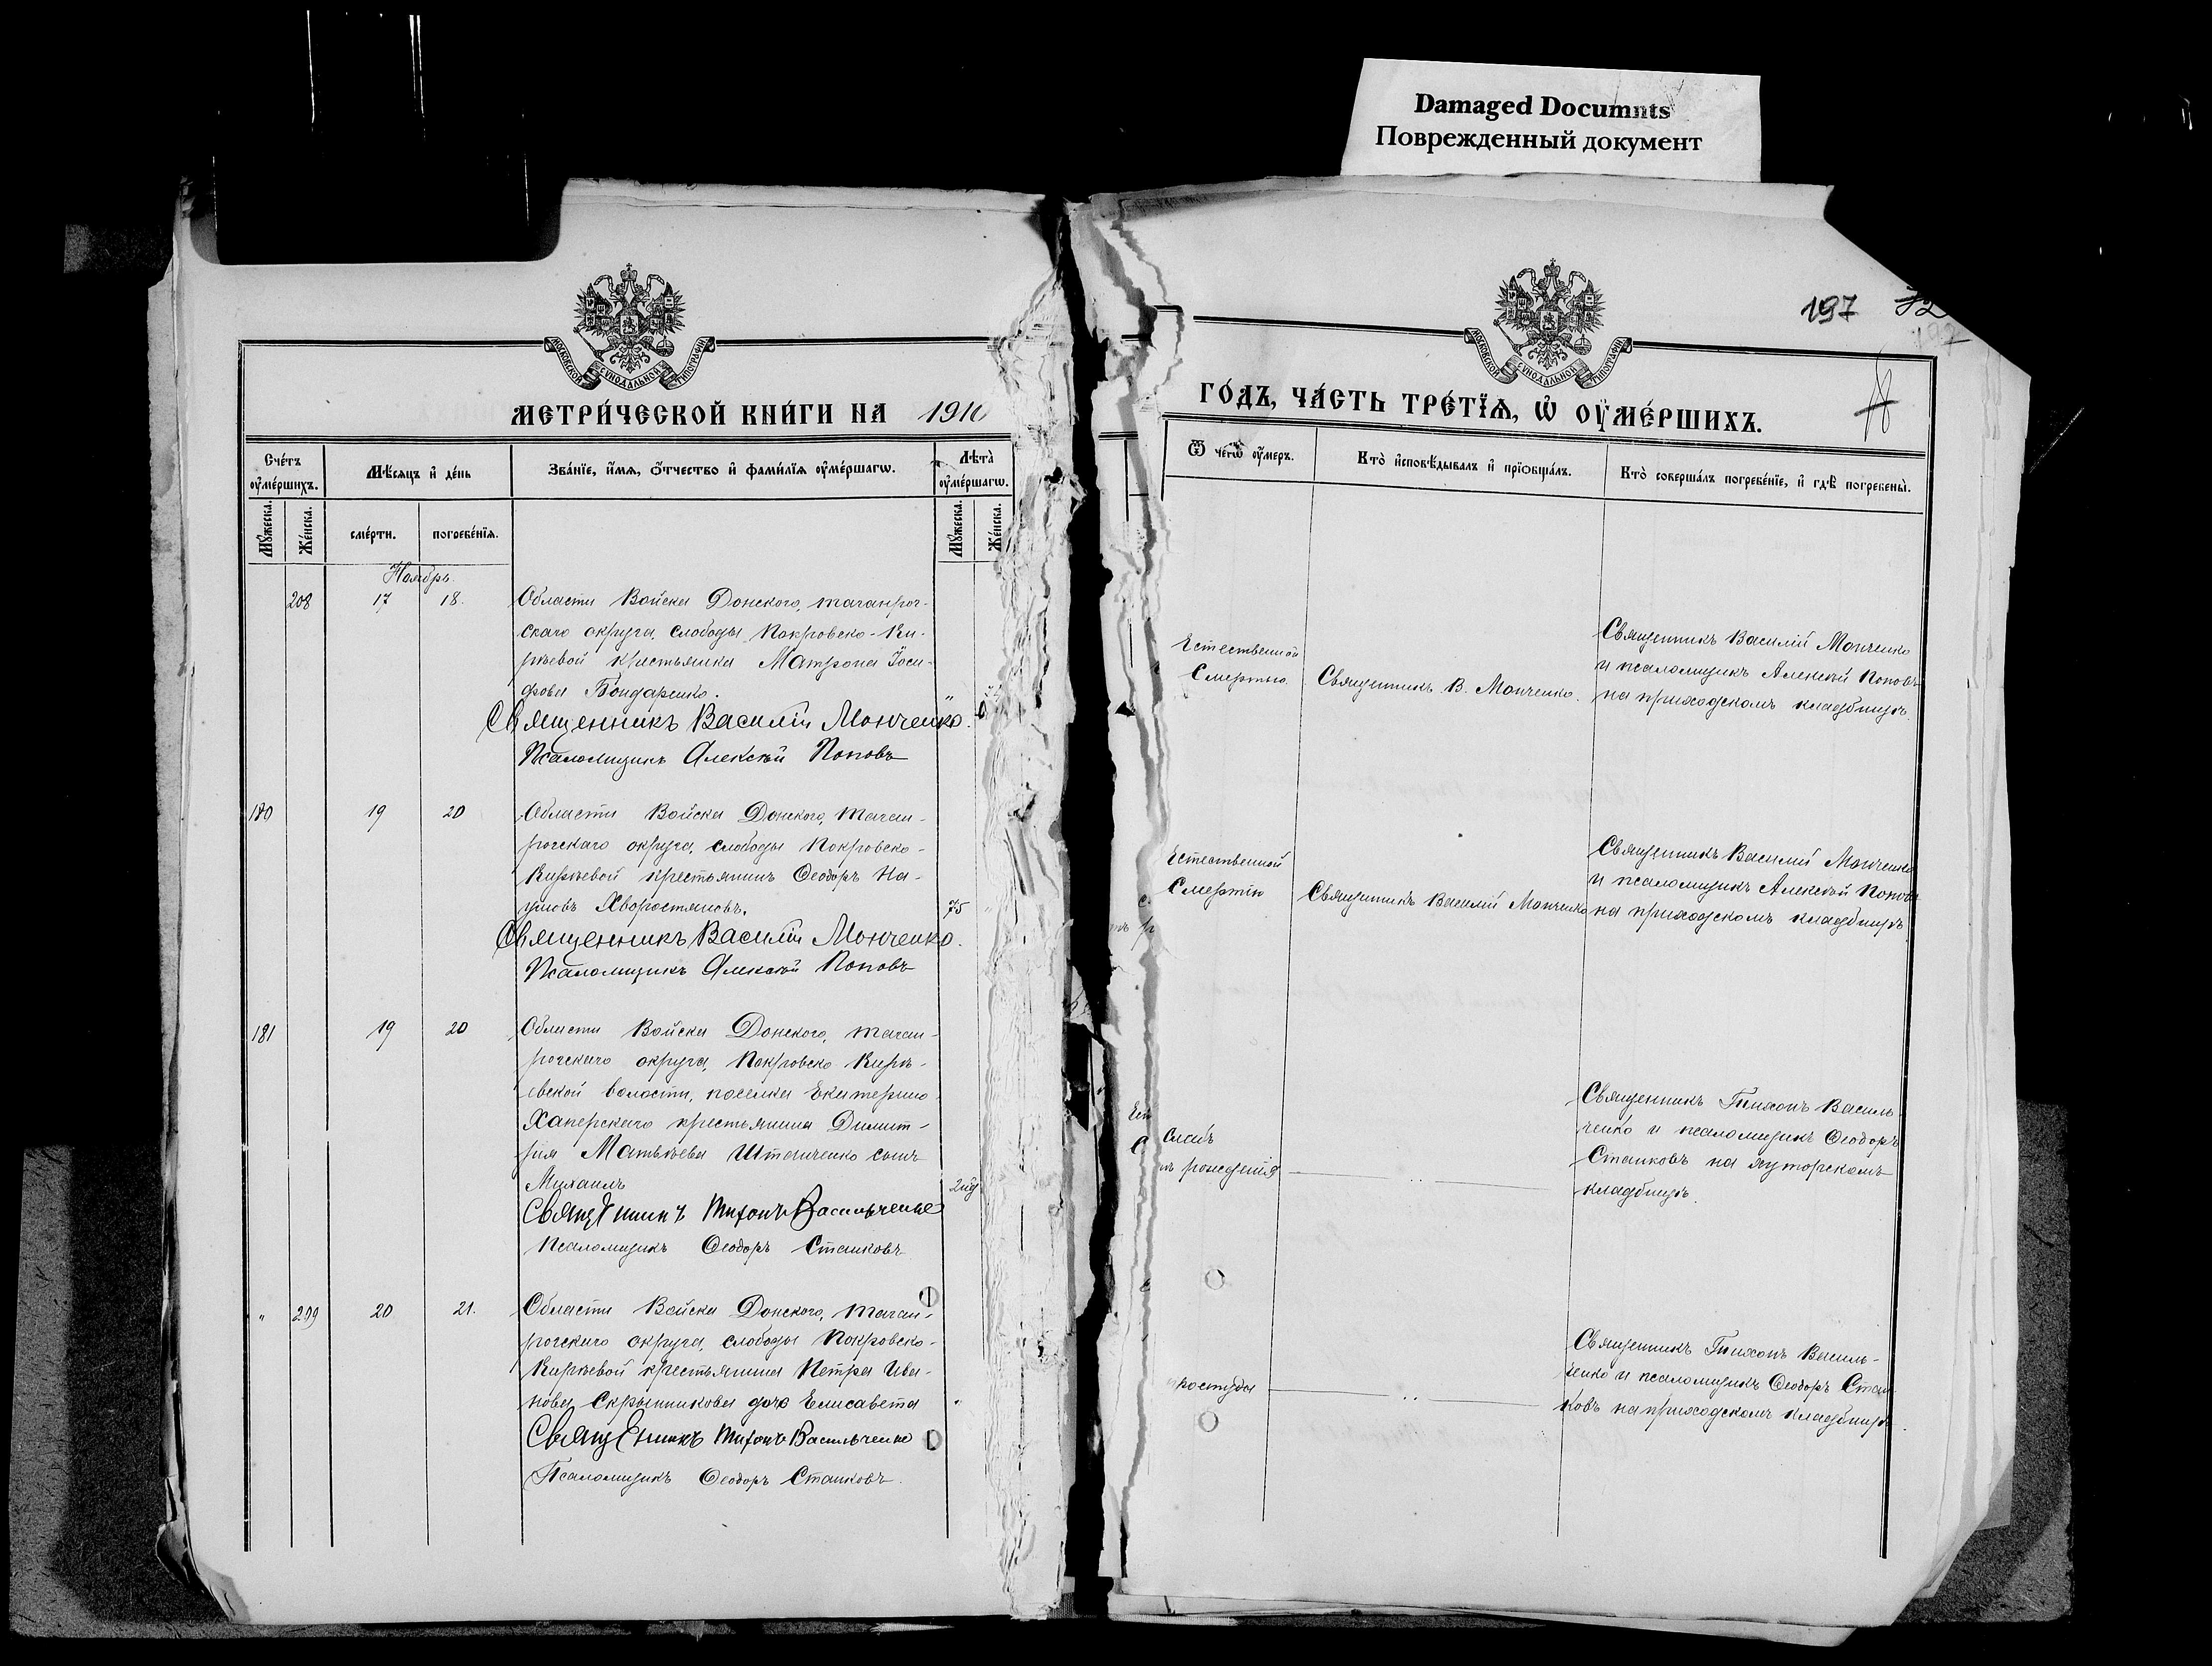 Damaged Documnts
Поврежденный документ
197
МОСКОВСКОЙ СѴНОДАЛЬНОЙ ТИПОГРАФІИ
МОСКОВСКОЙ СѴНОДАЛЬНОЙ ТИПОГРАФІИ
МЕТРИ́ЧЕСКОЙ КНИ́ГИ НА 1910
ГО́ДЪ, ЧА́СТЬ ТРЕ́ТЇѦ, Ѡ҆ ОУ҆МЕ́РШИХЪ.
Сче́тъ оу҆ме́ршихъ.
Мѣ́сяцъ и҆ де́нь
Зва́нїе, и҆́мя, ѻ҆́тчество и҆ фами́лїя оу҆ме́ршагѡ.
Лѣта̀ оу҆ме́ршагѡ.
Ѿ чегѡ̀ оу҆́меръ.
Кто̀ и҆сповѣ́дывалъ и҆ прїѻбща́лъ.
Кто̀ соверша́лъ погребе́нїе, и҆ гдѣ̀ погребены̀.
Мꙋ́жеска.
Же́нска.
сме́рти.
погребе́нїя.
Мꙋ́жеска.
Же́нска.
Ноябрь.
208 17 18.
Области Войска Донского, таганрог-
скаго округа, слободы Покровско-Ки-
рѣевой крестьянка Матрона Іоси-
фова Бондаренко.
Священникъ Василій Монченко.
Псаломщикъ Алексѣй Поповъ
Естественной
Смертью
Священникъ В. Монченко.
Священникъ Василій Монченко
и псаломщикъ Алексѣй Поповъ
на приходскомъ кладбищѣ.
180 19 20
Области Войска Донского, таган-
рогскаго округа, слободы Покровско-
Кирѣевой крестьянинъ Ѳеодоръ На-
умовъ Хворостяновъ.
75
Священникъ Василій Монченко.
Псаломщикъ Алексѣй Поповъ
Естественной
Смертію
Священникъ Василій Монченко
Священникъ Василій Монченко
и псаломщикъ Алексѣй Поповъ
на приходскомъ кладбищѣ.
181 19 20
Области Войска Донского, таган-
рогскаго округа, Покровско Кирѣ-
евской волости, поселка Екатерино-
Хаперскаго крестьянина Димит-
рія Матвѣева Штанченко сынъ
Михаилъ
Священникъ Тихонъ Васильченко
Псаломщикъ Ѳеодоръ Станковъ
рожденія
Священникъ Тихонъ Василь
ченко и псаломщикъ Ѳеодоръ
Станковъ на хуторскомъ
кладбищѣ.
" 209 20 21.
Области Войска Донского, таган-
рогскаго округа, слободы Покровско-
Кирѣевой крестьянина Петра Ива-
нова Скрынникова дочь Елисавета
Священникъ Тихонъ Васильченко
Псаломщикъ Ѳеодоръ Станковъ.
простуда
Священникъ Тихонъ Василь-
ченко и псаломщикъ Ѳеодоръ Стан
ковъ на приходскомъ кладбищѣ.